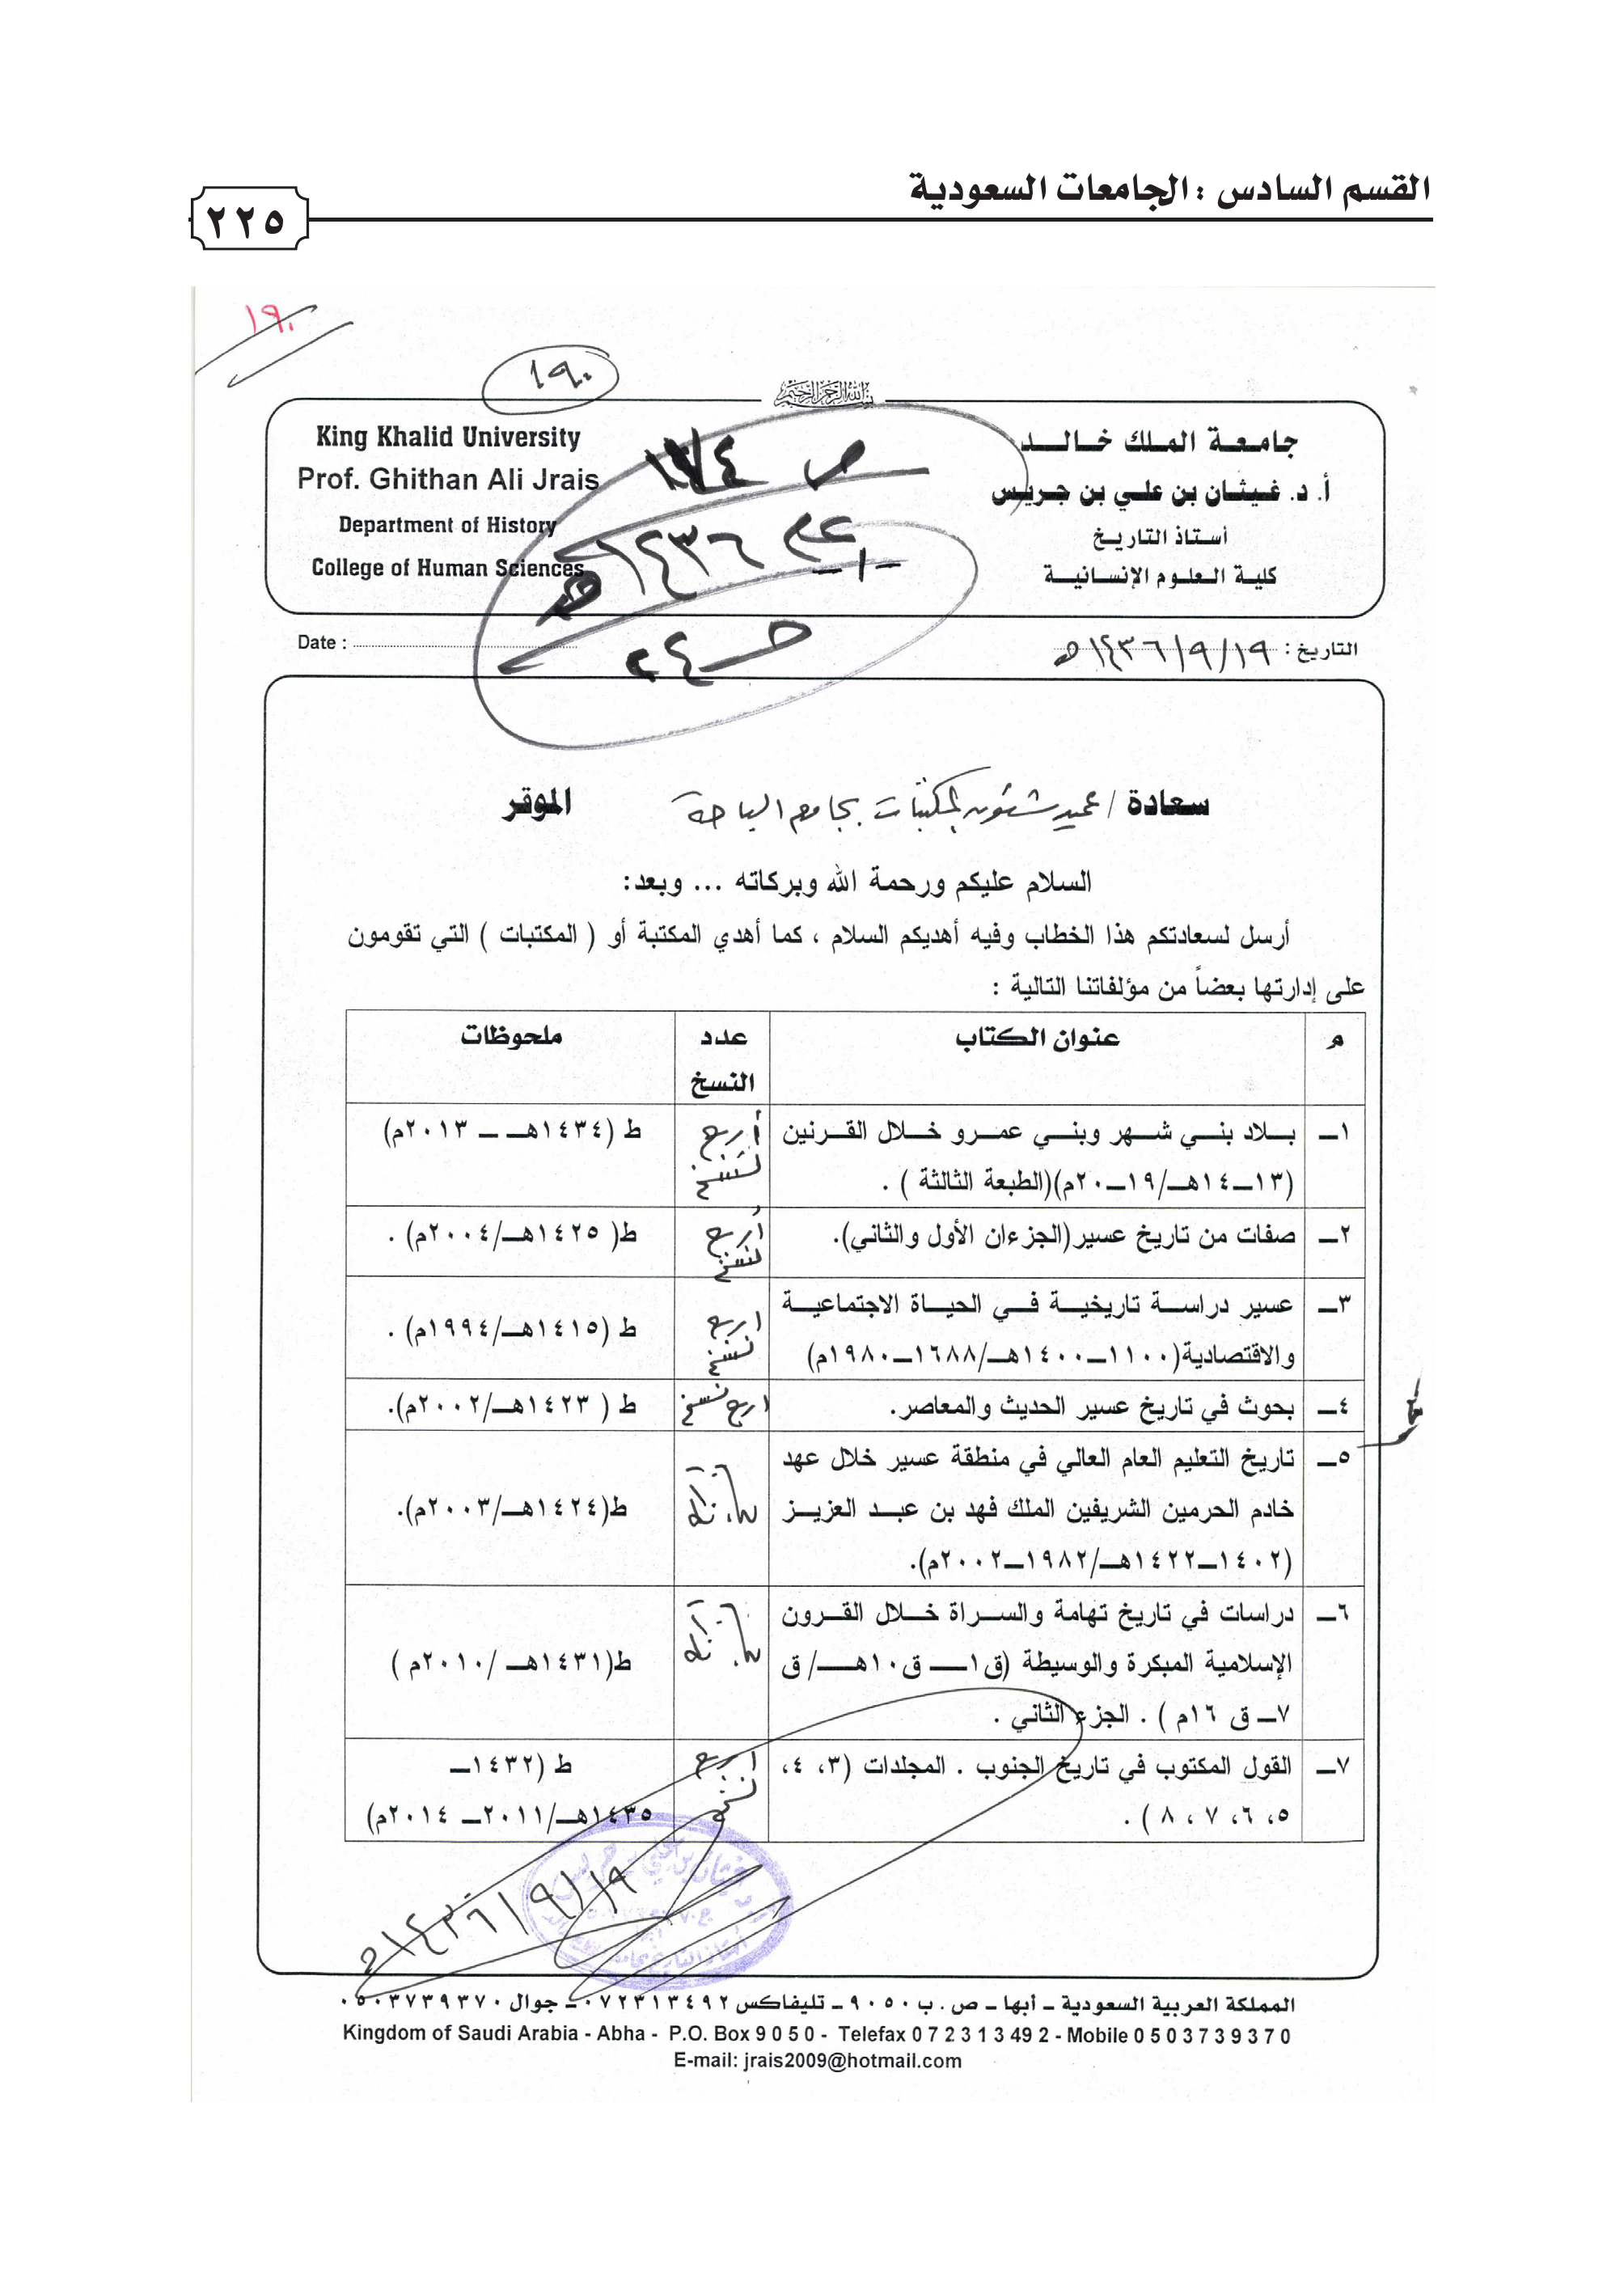 القسم السادس : الجامعات السعودية
٢٢٥
١٩٠
١٩٠
بسم الله الرحمن الرحيم
جامعة الملك خالد
أ. د. غيثان بن علي بن جريس
أستاذ التاريخ
كلية العلوم الإنسانية
King Khalid University
Prof. Ghithan Ali Jrais
Department of History
College of Human Sciences
ص
١٤٣٦هـ
التاريخ : ١٤٣٦/٩/١٩هـ
Date :
سعادة / عميد شئون المكتبات بجامعة الباحة الموقر
السلام عليكم ورحمة الله وبركاته ... وبعد:
أرسل لسعادتكم هذا الخطاب وفيه أهديكم السلام ، كما أهدي المكتبة أو ( المكتبات ) التي تقومون
على إدارتها بعضاً من مؤلفاتنا التالية :
م عنوان الكتاب عدد النسخ ملحوظات
١ــ بلاد بني شهر وبني عمرو خلال القرنين أربع نسخ ط (١٤٣٤هـ ــ ٢٠١٣م)
(١٣ــ١٤هـ/١٩ــ٢٠م)(الطبعة الثالثة ) .
٢ــ صفات من تاريخ عسير(الجزءان الأول والثاني). أربع نسخ ط( ١٤٢٥هـ/٢٠٠٤م) .
٣ــ عسير دراسة تاريخية في الحياة الاجتماعية اربع نسخ ط (١٤١٥هـ/١٩٩٤م) .
والاقتصادية(١١٠٠ــ١٤٠٠هـ/١٦٨٨ــ١٩٨٠م)
٤ــ بحوث في تاريخ عسير الحديث والمعاصر. اربع نسخ ط ( ١٤٢٣هـ/٢٠٠٢م).
٥ــ تاريخ التعليم العام العالي في منطقة عسير خلال عهد
خادم الحرمين الشريفين الملك فهد بن عبد العزيز ط(١٤٢٤هـ/٢٠٠٣م).
(١٤٠٢ــ١٤٢٢هـ/١٩٨٢ــ٢٠٠٢م).
٦ــ دراسات في تاريخ تهامة والسراة خلال القرون
الإسلامية المبكرة والوسيطة (ق١ــ ق١٠هـ/ ق ط(١٤٣١هـ /٢٠١٠م )
٧ــ ق ١٦م ) . الجزء الثاني .
٧ــ القول المكتوب في تاريخ الجنوب . المجلدات (٣، ٤، اربع نسخ ط (١٤٣٢ــ
٥، ٦، ٧ ، ٨ ) . ١٤٣٥هـ/٢٠١١ــ ٢٠١٤م)
١٤٣٦/٩/١٩هـ
المملكة العربية السعودية ــ أبها ــ ص . ب ٩٠٥٠ ــ تليفاكس ٠٧٢٣١٣٤٩٢ ــ جوال ٠٥٠٣٧٣٩٣٧٠
Kingdom of Saudi Arabia - Abha - P.O. Box 9 0 5 0 - Telefax 0 7 2 3 1 3 49 2 - Mobile 0 5 0 3 7 3 9 3 7 0
E-mail: jrais2009@hotmail.com